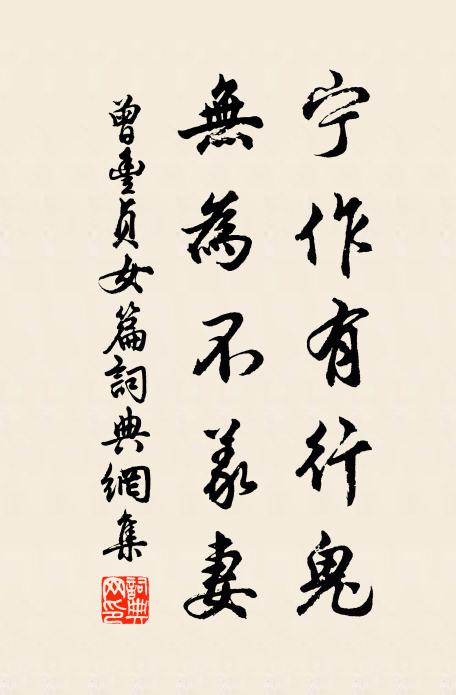 宁作有行鬼
無為不義妻
曾豐貞女篇詞典網集
詞典網印